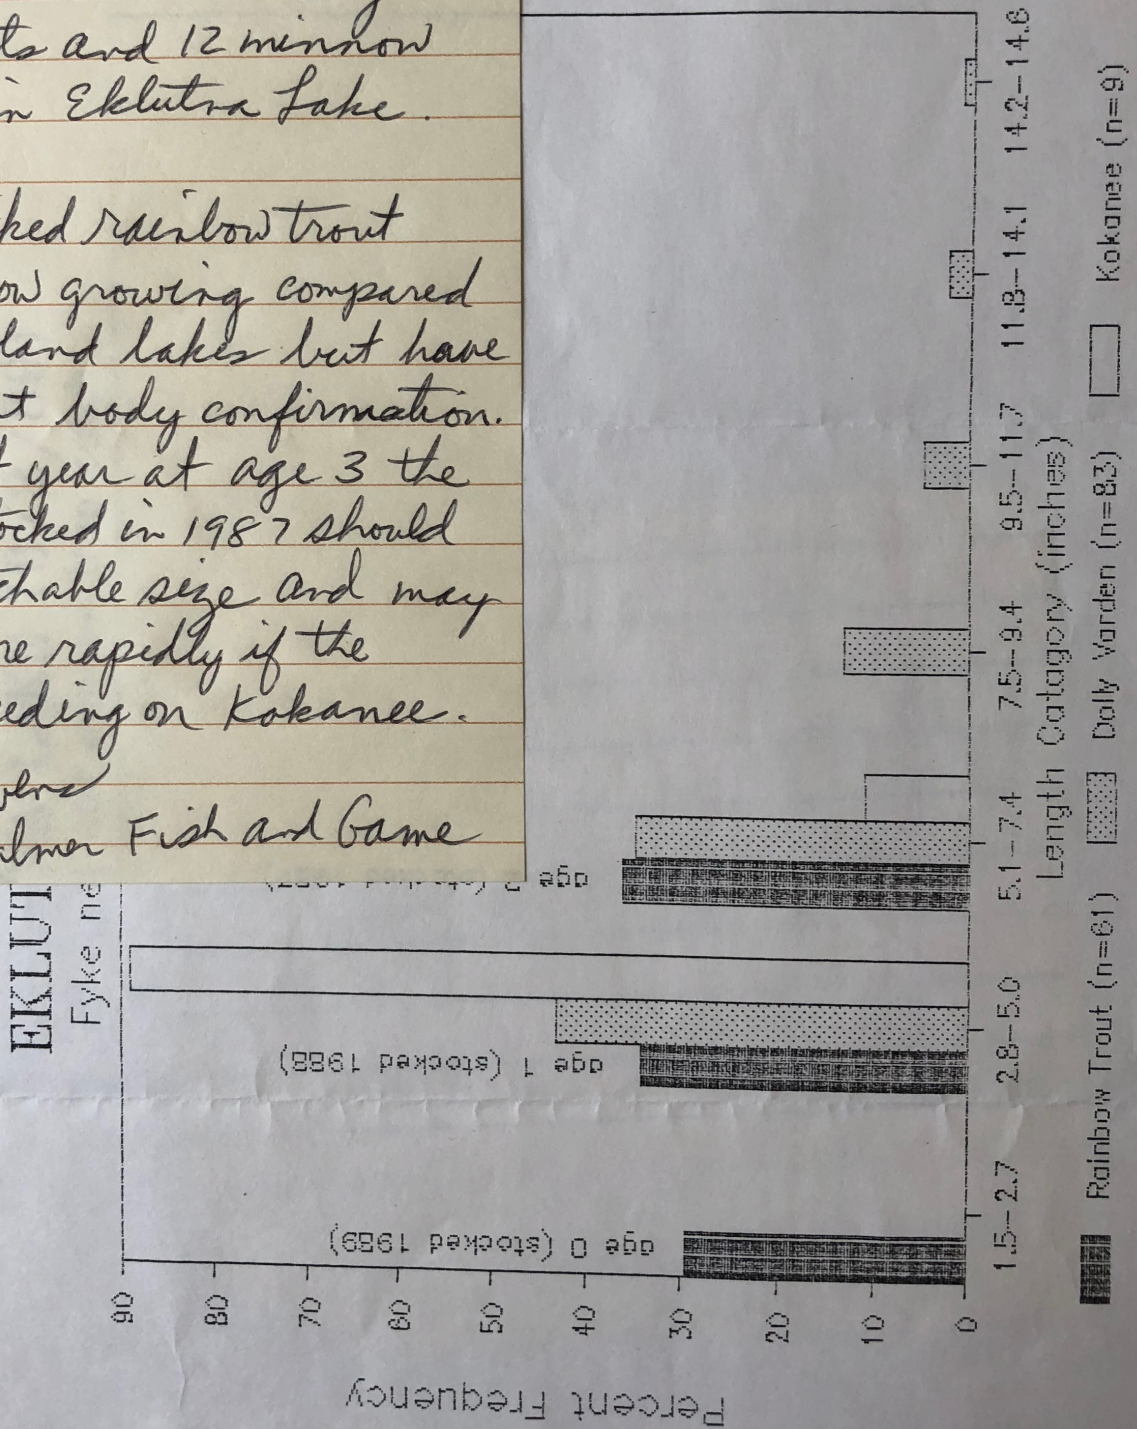 ts and 12 minnow
n Eklutna Lake.
ked rainbow trout
ow growing compared
land lakes but have
t body confirmation.
t year at age 3 the
ocked in 1987 should
chable size and may
re rapidly if the
eding on Kokanee.
almer Fish and Game
EKLUT
Fyke ne
Percent Frequency
90
80
70
60
50
40
30
20
10
0
age 0 (stocked 1989)
age 1 (stocked 1988)
age 2 (stocked 1987)
1.5-2.7
2.8-5.0
5.1-7.4
7.5-9.4
9.5-11.7
11.8-14.1
14.2-14.6
Length Catagory (inches)
Rainbow Trout (n=61)
Dolly Varden (n=83)
Kokanee (n=9)